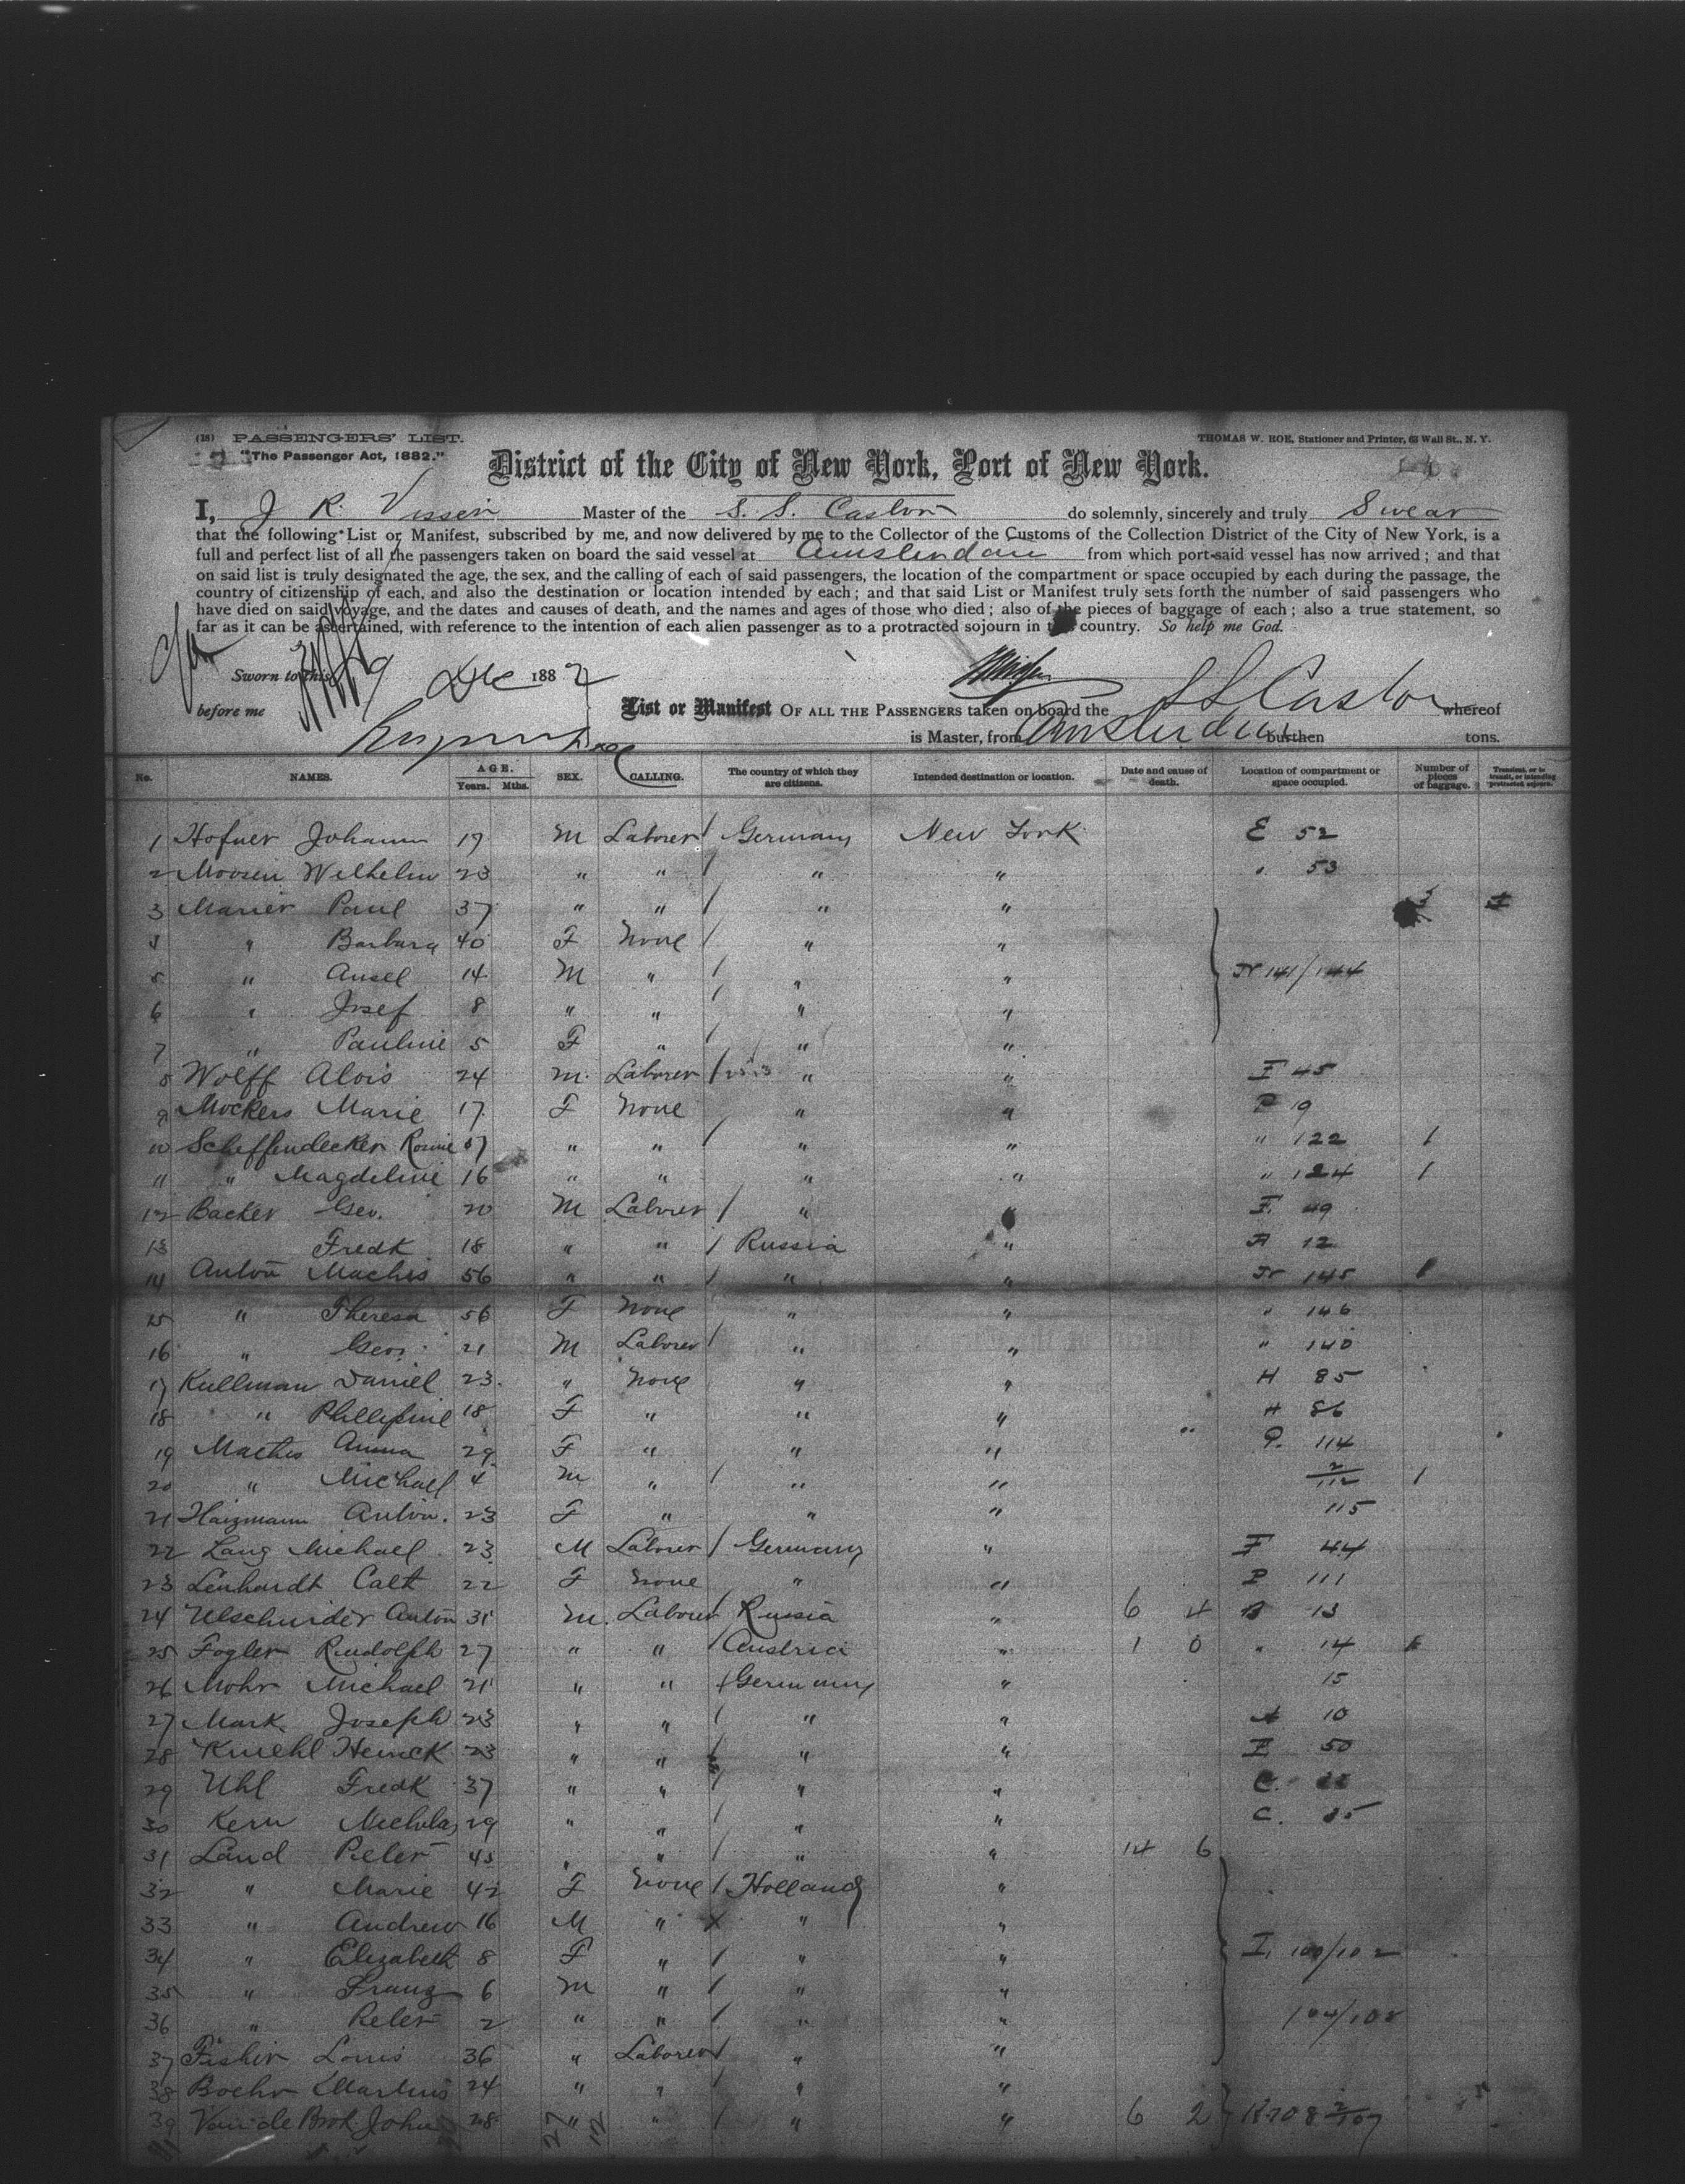 (18) PASSENGERS' LIST.
THOMAS W. ROE, Stationer and Printer, 63 Wall St., N. Y.
"The Passenger Act, 1882."
District of the City of New York, Port of New York.
I, J R. Master of the S. S. Castor do solemnly, sincerely and truly Swear
that the following List or Manifest, subscribed by me, and now delivered by me to the Collector of the Customs of the Collection District of the City of New York, is a
full and perfect list of all the passengers taken on board the said vessel at Amsterdam from which port said vessel has now arrived; and that
on said list is truly designated the age, the sex, and the calling of each of said passengers, the location of the compartment or space occupied by each during the passage, the
country of citizenship of each, and also the destination or location intended by each; and that said List or Manifest truly sets forth the number of said passengers who
have died on said voyage, and the dates and causes of death, and the names and ages of those who died; also of the pieces of baggage of each; also a true statement, so
far as it can be ascertained, with reference to the intention of each alien passenger as to a protracted sojourn in country. So help me God.
Sworn to this 9 Dec 1882
before me
List or Manifest OF ALL THE PASSENGERS taken on board the SS Castor whereof
is Master, from Amsterdam burthen tons.
No. NAMES. AGE. Years. Mths. SEX. CALLING. The country of which they are citizens. Intended destination or location. Date and cause of death. Location of compartment or space occupied. Number of pieces of baggage. Transient, or in transit, or intending protracted sojourn.
1 Hofner Johann 19 M Laborer / Germany New York E 52
2 Wilhelm 23 " " / " " " 53
3 Marier Paul 37 " " / " "
4 " Barbara 40 F None / " "
5 " Ansel 14 M " / " " 141/144
6 " Josef 8 " " / " "
7 " Pauline 5 F " / " "
8 Wolff Alois 24 M. Laborer / " " F 45
9 Mockers Marie 17 F None " " P 19
10 Scheffendecker " " / " " " 122 1
11 " Magdeline 16 " " " " " 124 1
12 Backer Geo. 20 M Laborer / " " F. 49
13 Fredk 18 " " / Russia " A 12
14 Anton Machis 56 " " / " " 145
15 " Theresa 56 F None " " " 146
16 " Geo. 21 M Laborer / " " " 140
17 Kullman Daniel 23 " None " " H 85
18 " Phillipine 18 F " " " H 86
19 Mathis Anna 29 F " " " P. 114
20 " Michael 4 M " / " " 2/112 1
21 Haizmann 23 F " " " 115
22 Lang Michael 23 M Laborer / Germany " F 44
23 Lenhardt 22 F None " " P 111
24 Anton M. Laborer Russia " 6 4 13
25 Fogler Rudolph 27 " " / Austria " 1 0 " 14
26 Mohr Michael 21 " " / Germany " 15
27 Mark Joseph 23 " " / " " A 10
28 23 " " / " " 50
29 Uhl Fredk 37 " " / " " C.
30 Kern Nicholas 29 " " / " " C.
31 Land Peter " " / " " 14 6
32 " Marie 42 F None / Holland "
33 " Andrew 16 M " X " "
34 " Elizabeth 8 F " / " " 100/102
35 " Franz 6 M " / " "
36 " Peter 2 " " / " " 104/108
37 Fisher Louis 36 " Laborer / " "
38 Boehr 24 " " / " "
39 Van de John 28 " " / " " 6 2